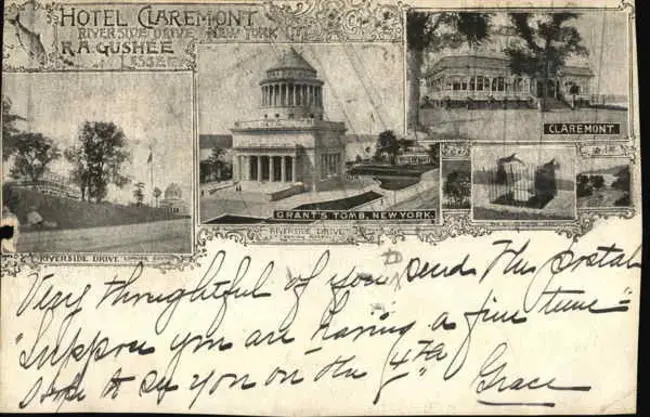 HOTEL CLAREMONT
RIVERSIDE DRIVE, NEW YORK
R.A. GUSHEE
LESSEE
CLAREMONT
GRANT'S TOMB, NEW YORK.
RIVERSIDE DRIVE
RIVERSIDE DRIVE, LOOKING SOUTH
Very thoughtful of you send the postal
"Suppose you are having a fine time"
Hope to see you on the 4th
Grace